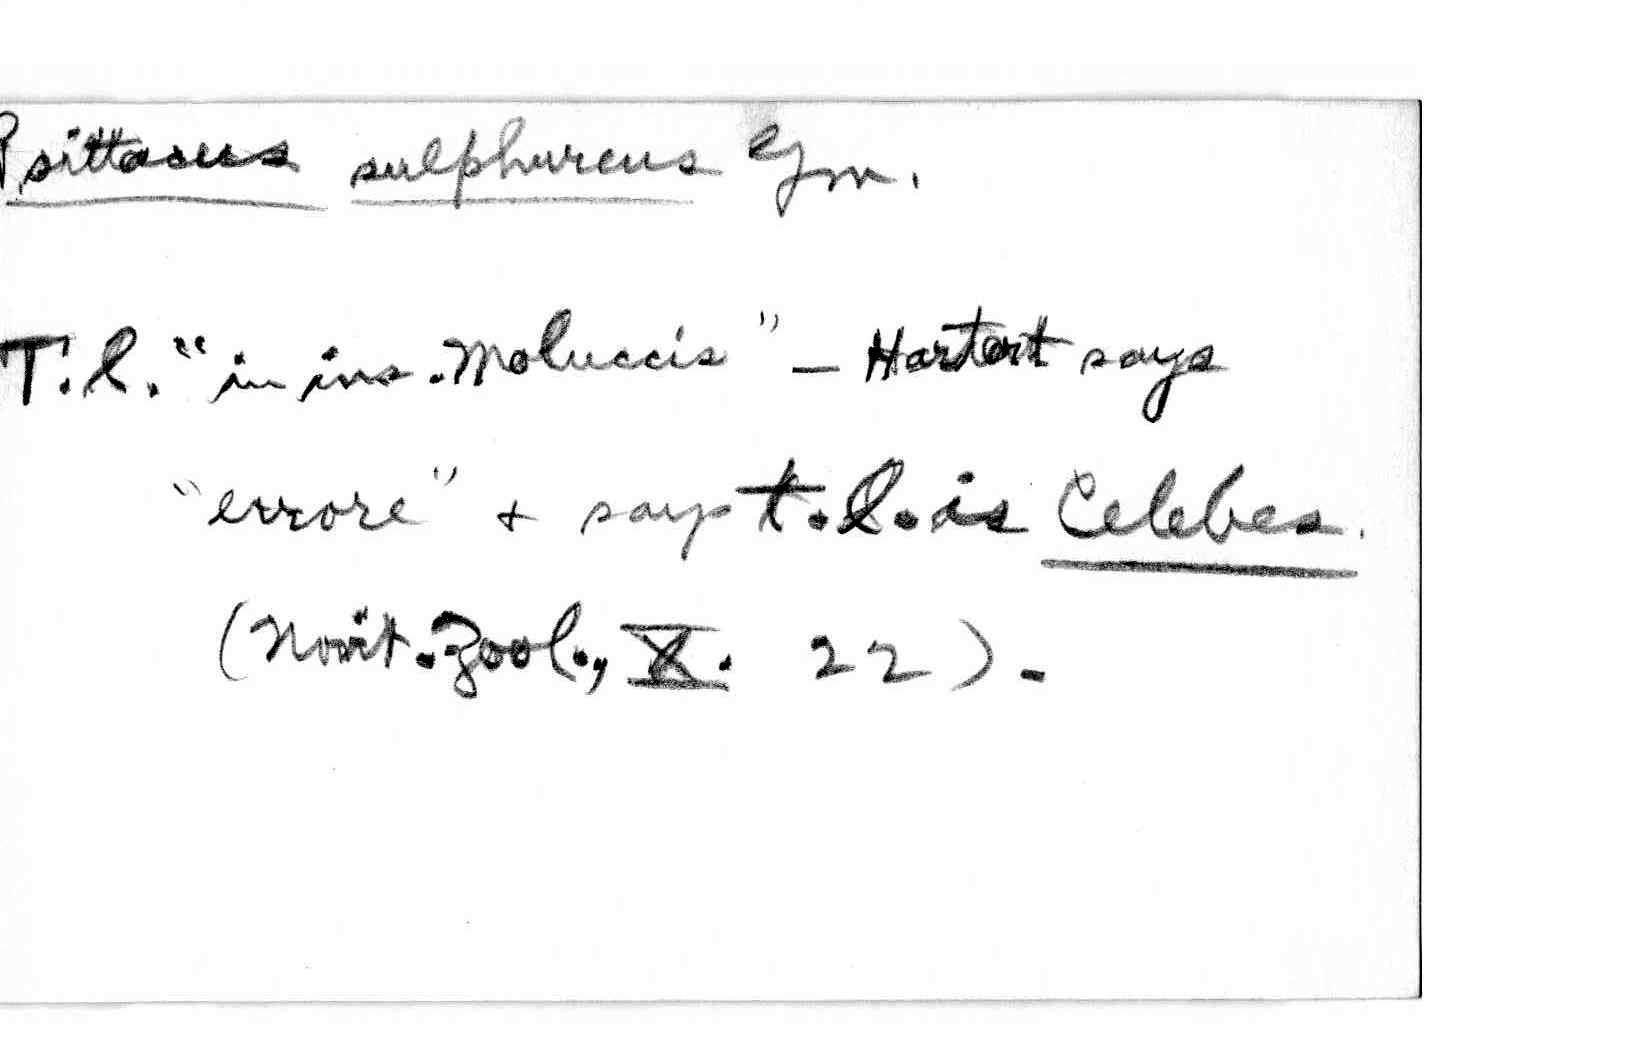 Psittacus sulphureus Gm.
T.l. "in ins. Moluccis" – Hartert says
"errore" + says t.l. is Celebes.
(Novit. Zool., X. 22).-